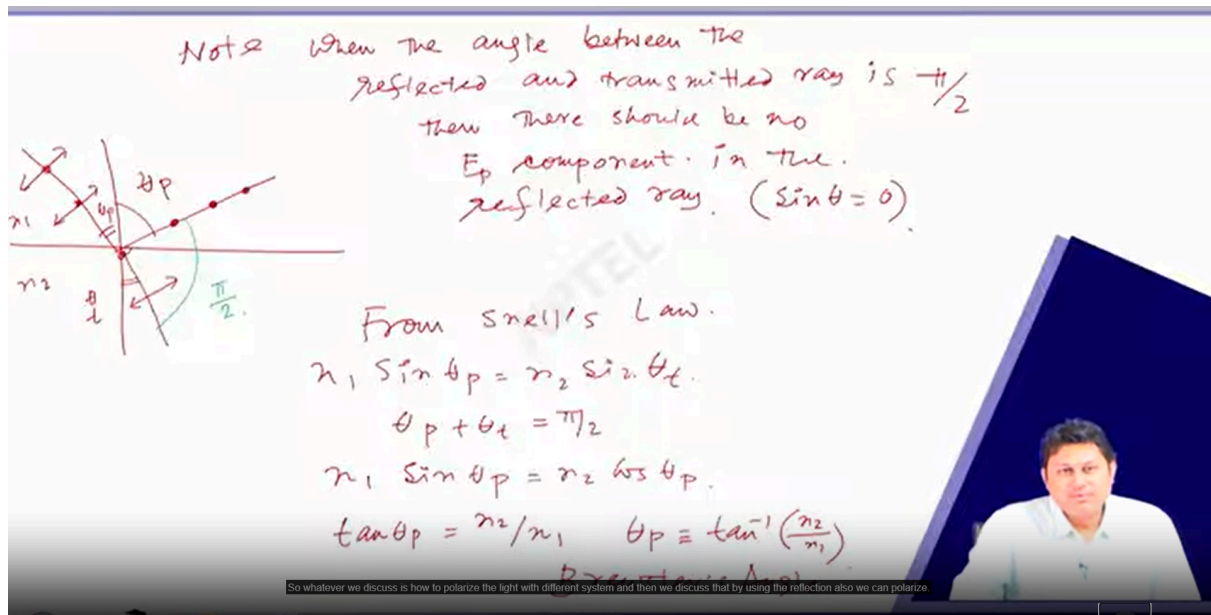 Note When the angle between the
reflected and transmitted ray is π/2
then there should be no
Ep component. in the.
reflected ray. (sinθ = 0).
θp
θp
n1
n2
θt
π/2.
NPTEL
From Snell's Law.
n1 sin θp = n2 sin θt.
θp + θt = π/2
n1 sin θp = n2 cos θp.
tan θp = n2/n1 θp ≡ tan⁻¹(n2/n1)
So whatever we discuss is how to polarize the light with different system and then we discuss that by using the reflection also we can polarize.